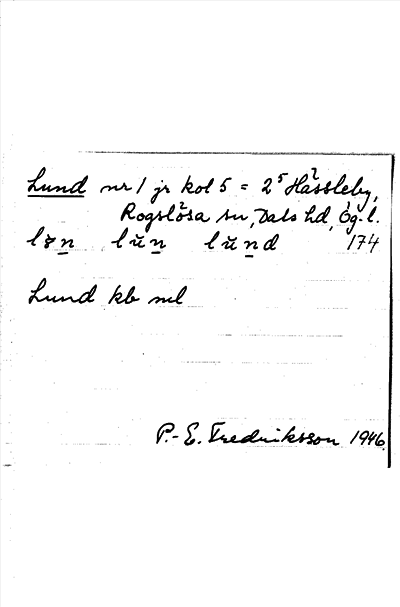 Lund nr 1 jr kol 5 = 2⁵ Hässleby,
Rogslösa sn, Dals hd, Ög. l.
lun lun lund 174
Lund kb ml
P.-E. Fredriksson 1946.